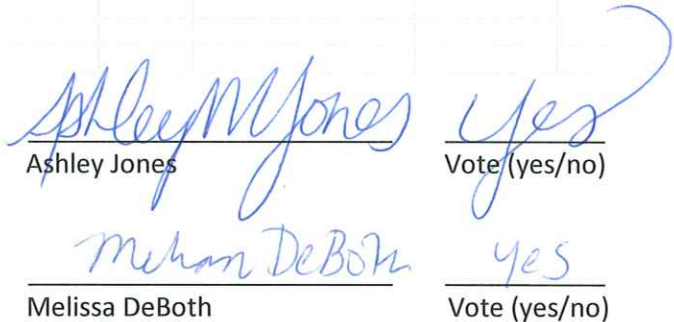 Ashley M Jones yes
Ashley Jones Vote (yes/no)
DeBoth yes
Melissa DeBoth Vote (yes/no)